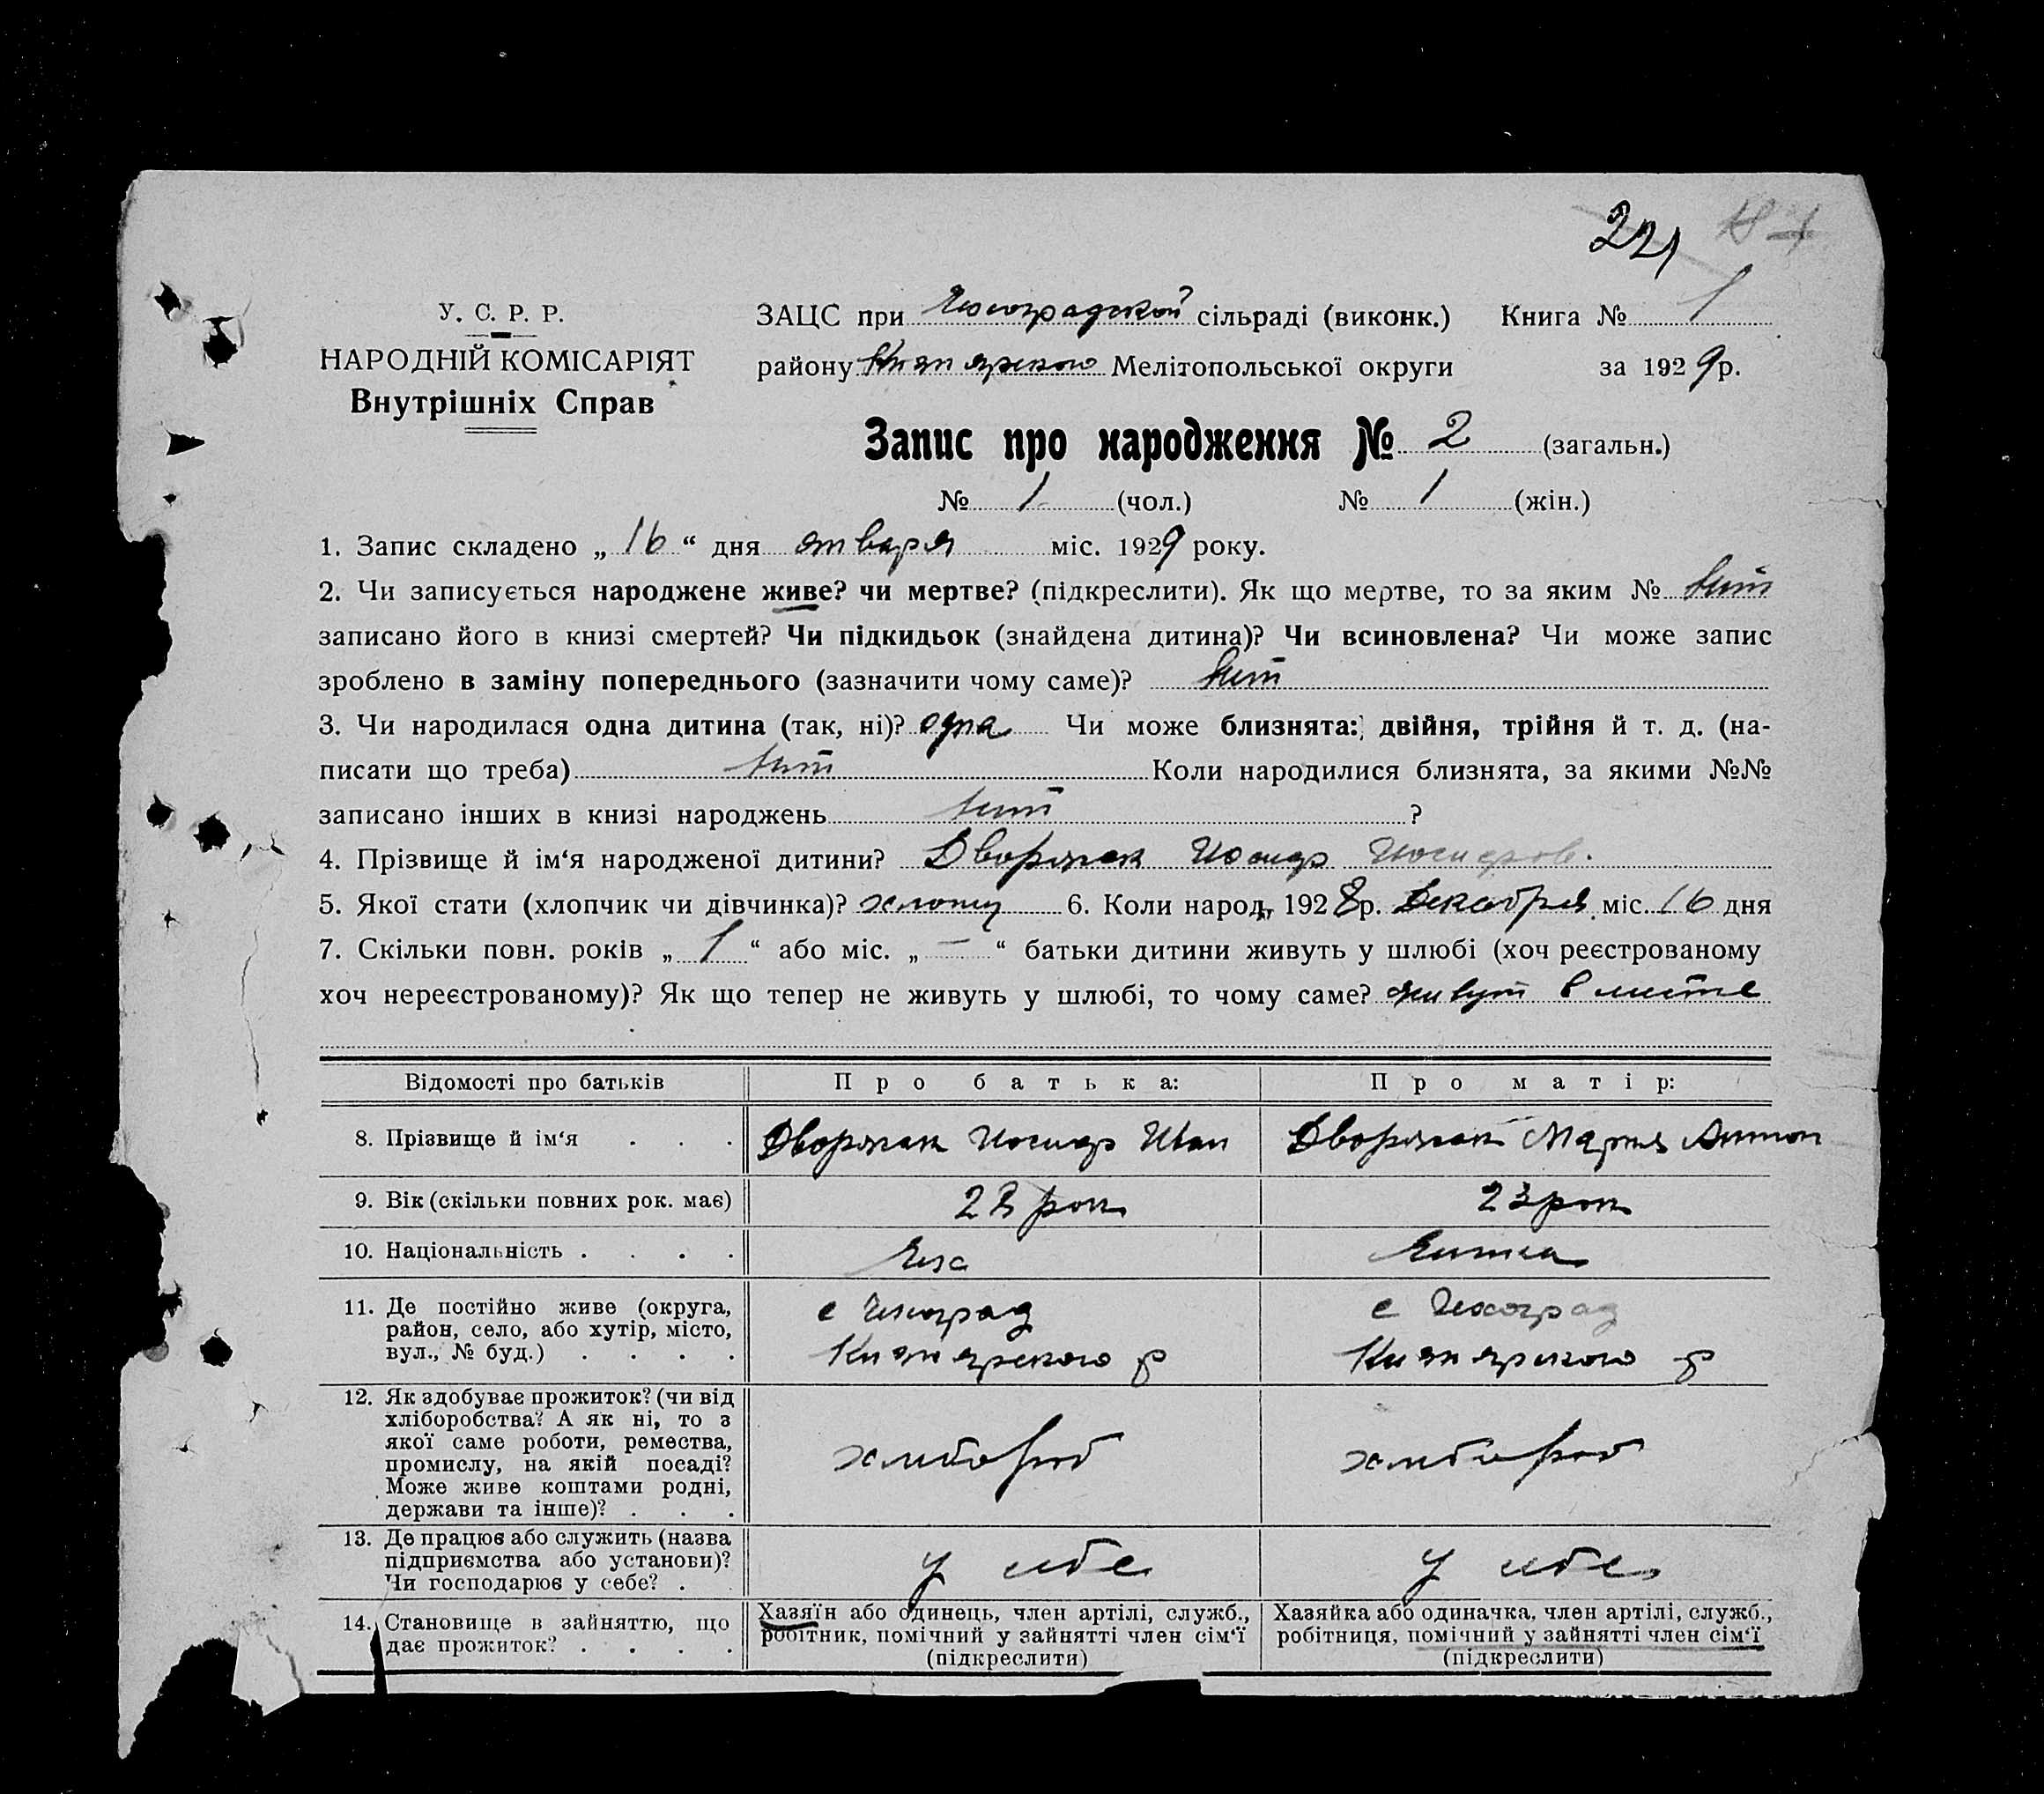 221
У. С. Р. Р.
НАРОДНІЙ КОМІСАРІЯТ
Внутрішніх Справ
ЗАЦС при Чехоградской сільраді (виконк.) Книга № 1
району Кизиярского Мелітопольської округи за 1929 р.
Запис про народження № 2 (загальн.)
№ 1 (чол.) № 1 (жін.)
1. Запис складено „ 16 “ дня января міс. 1929 року.
2. Чи записується народжене живе? чи мертве? (підкреслити). Як що мертве, то за яким №
записано його в книзі смертей? Чи підкидьок (знайдена дитина)? Чи всиновлена? Чи може запис
зроблено в заміну попереднього (зазначити чому саме)?
3. Чи народилася одна дитина (так, ні)? одна Чи може близнята: двійня, трійня й т. д. (на-
писати що треба) Коли народилися близнята, за якими №№
записано інших в книзі народжень ?
4. Прізвище й ім‘я народженої дитини? Дворжак Иосиф Иосифов.
5. Якої стати (хлопчик чи дівчинка)? 6. Коли народ. 1928 р. Декабря міс. 16 дня
7. Скільки повн. років „ 1 “ або міс. „ — “ батьки дитини живуть у шлюбі (хоч реєстрованому
хоч нереєстрованому)? Як що тепер не живуть у шлюбі, то чому саме? живут в
Відомості про батьків Про батька: Про матір:
8. Прізвище й ім‘я . . . Дворжак Иосиф Иван Дворжак Мария Антон
9. Вік (скільки повних рок. має) рок 23 рок
10. Національність . . . . Чех Чешка
11. Де постійно живе (округа, район, село, або хутір, місто, вул., № буд.) . . . .
с Чехоград
Кизиярского р
с Чехоград
Кизиярского р
12. Як здобуває прожиток? (чи від
хліборобства? А як ні, то з
якої саме роботи, ремества,
промислу, на якій посаді?
Може живе коштами родні,
держави та інше)? . . .
хлибороб хлибороб
13. Де працює або служить (назва
підприємства або установи)?
Чи господарює у себе? .
у себе у себе
14. Становище в зайняттю, що
дає прожиток? . . . .
Хазяїн або одинець, член артілі, служб.,
робітник, помічний у зайнятті член сім‘ї
(підкреслити)
Хазяйка або одиначка, член артілі, служб.,
робітниця, помічний у зайнятті член сім‘ї
(підкреслити)